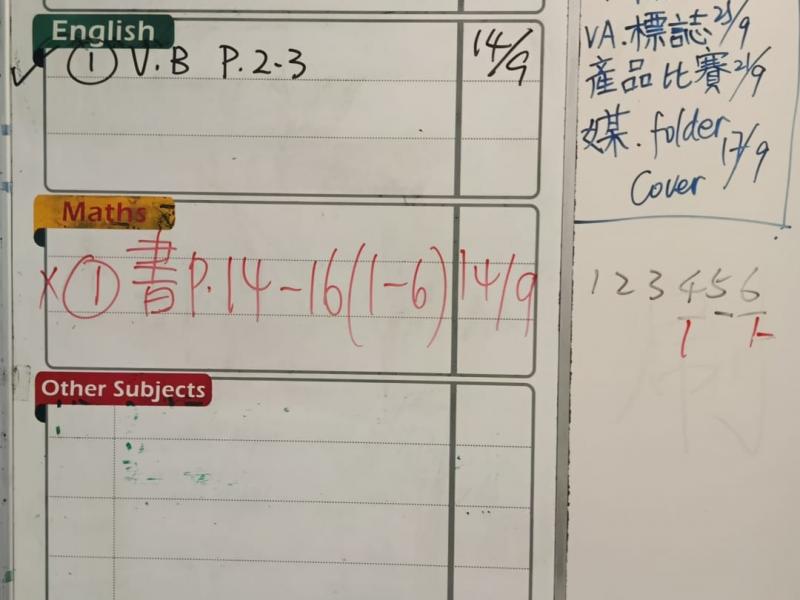 English
✓ ① V.B P.2-3 14/9
Maths
X ① 書 P.14-16(1-6) 14/9
Other Subjects
VA.標誌 23/9
產品比賽 21/9
媒.folder 17/9
Cover
1 2 3 4 5 6
1 - 1-